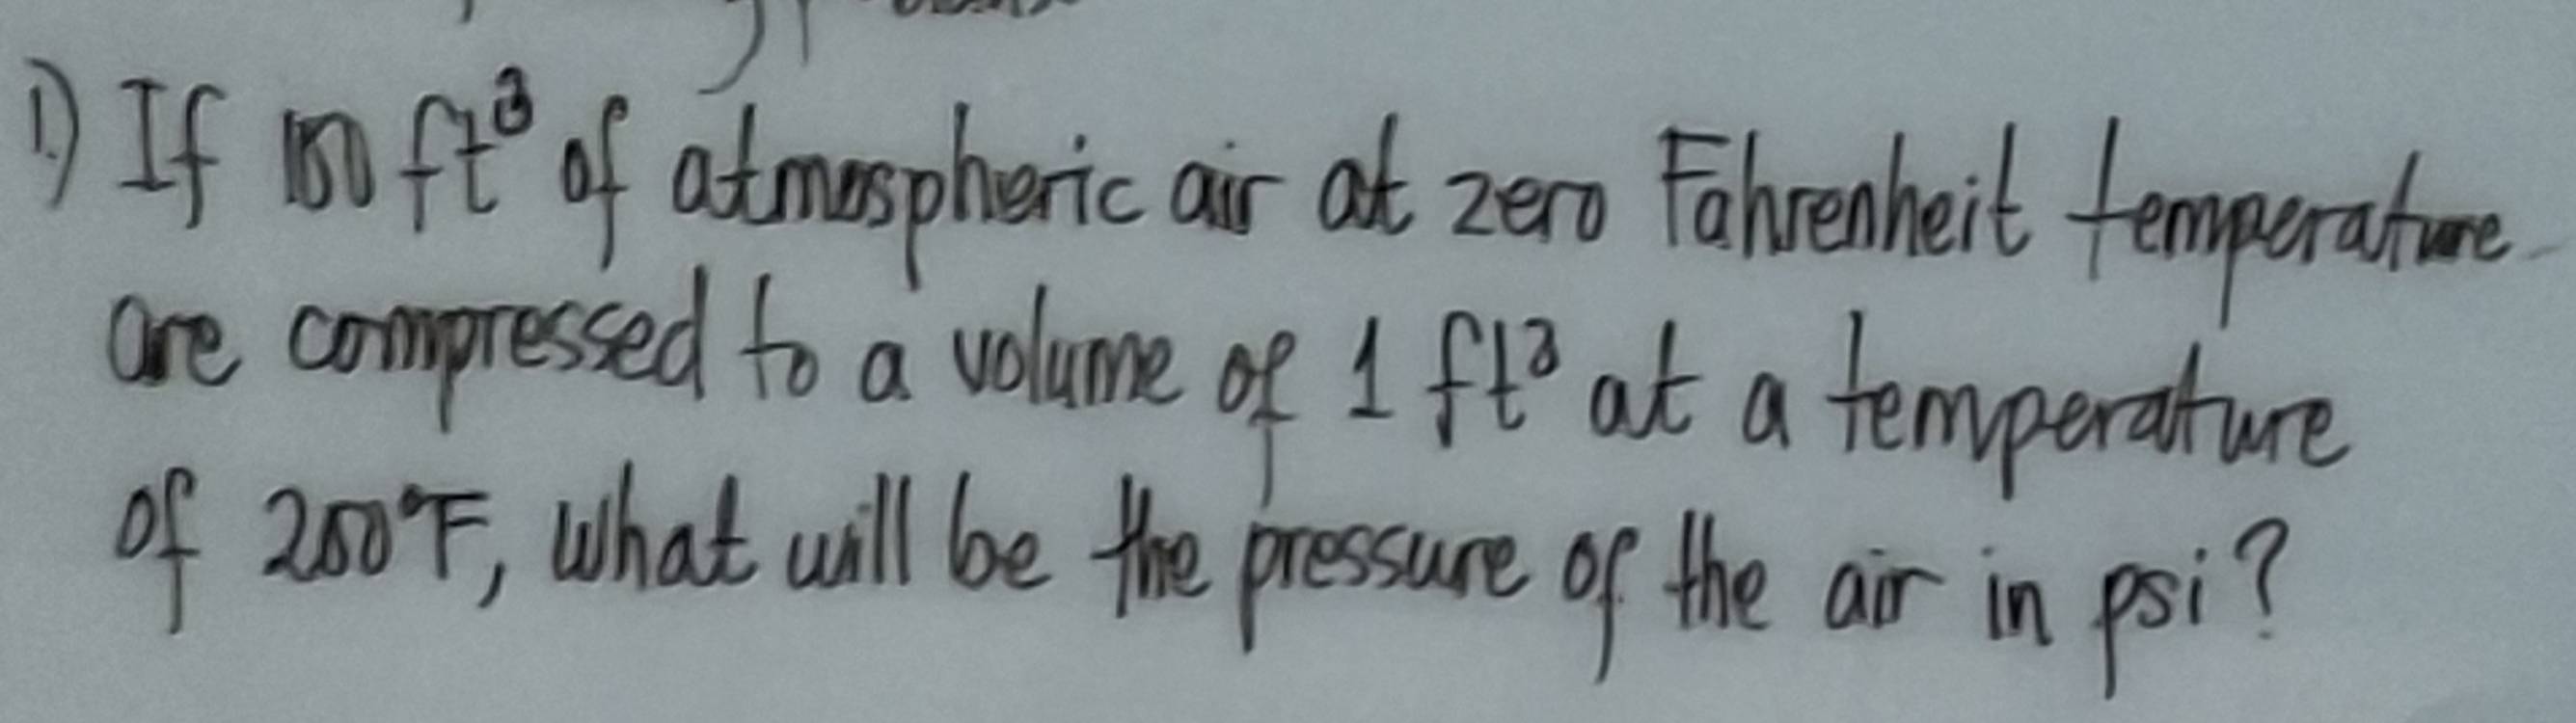 1.) If 100 ft³ of atmospheric air at zero Fahrenheit temperature
are compressed to a volume of 1 ft³ at a temperature
of 200°F, what will be the pressure of the air in psi?